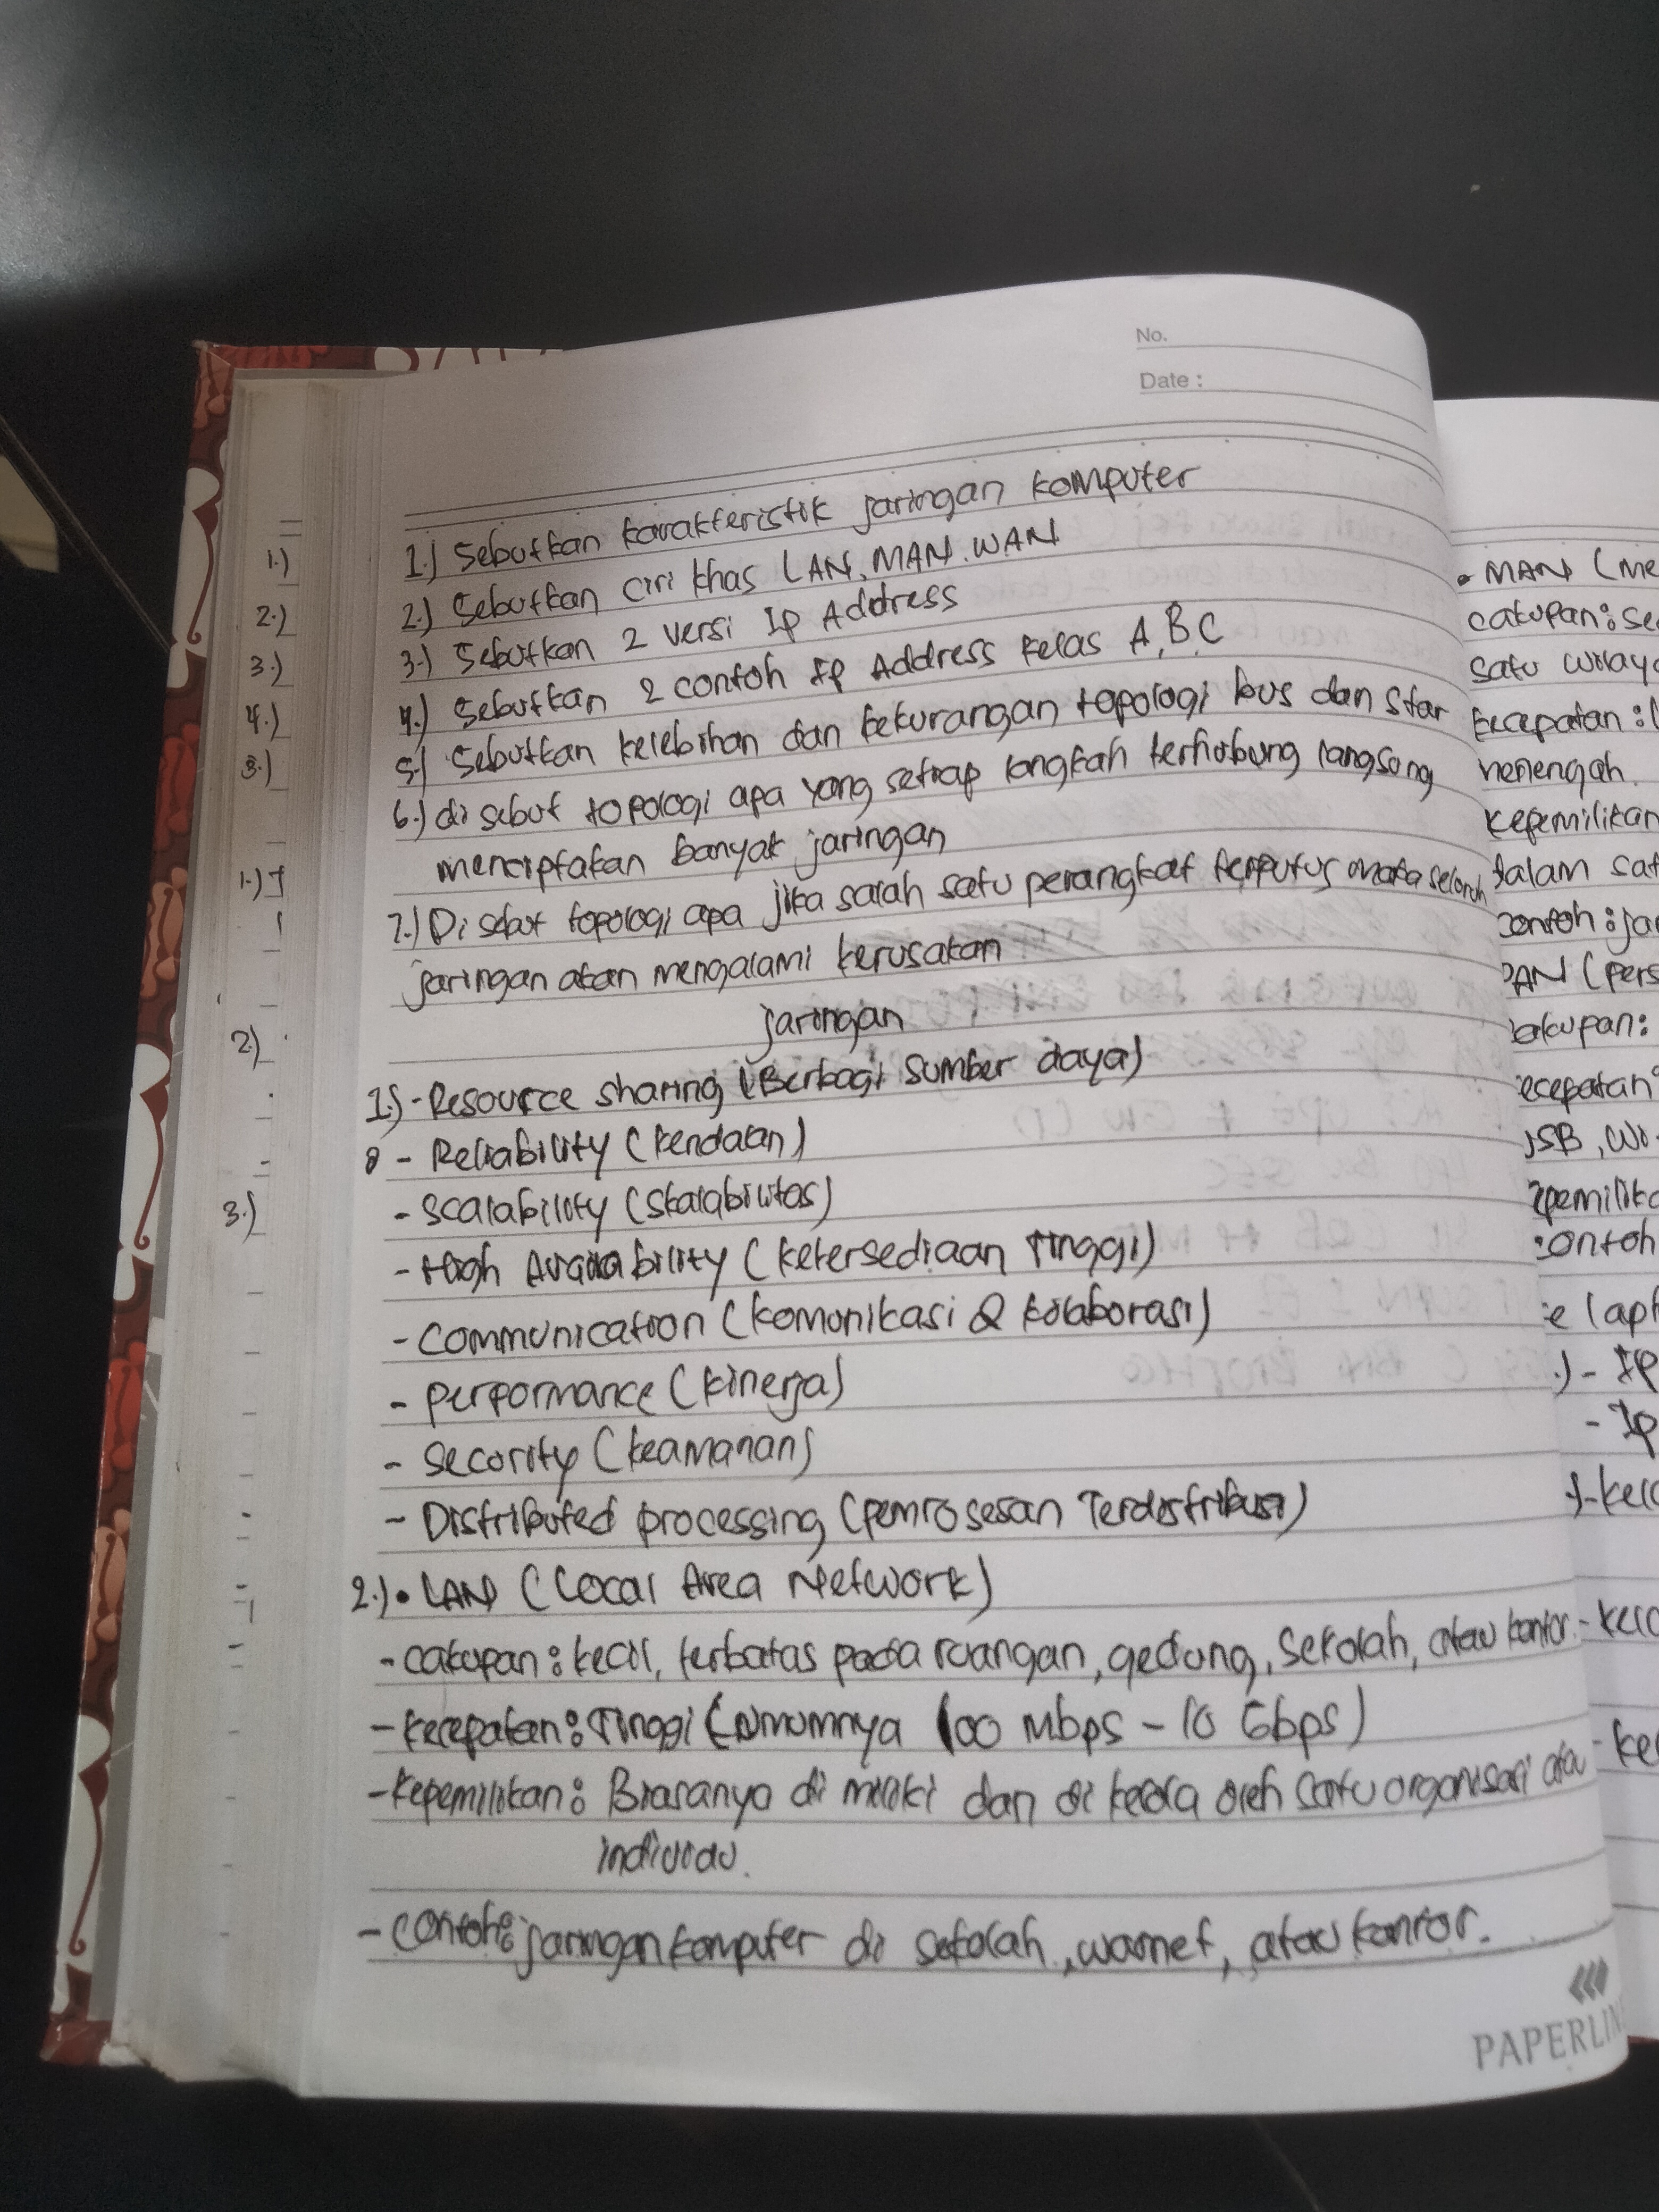 No.
Date :
1.) Sebutkan karakteristik jaringan komputer
2.) Sebutkan ciri khas LAN, MAN. WAN
3.) Sebutkan 2 versi Ip Address
4.) Sebutkan 2 contoh Ip Address kelas A, B, C
5.) Sebutkan kelebihan dan kekurangan topologi bus dan Star
6.) di sebut topologi apa yang setiap langkah terhubung langsung
menciptakan banyak jaringan
7.) Di sebut topologi apa jika salah satu perangkat terputus maka seluruh
jaringan akan mengalami kerusakan
jaringan
1.) - Resource sharing (Berbagi sumber daya)
- Reliability (kendalan)
- Scalability (Skalabilitas)
- High Availability (ketersediaan Tinggi)
- Communication (komunikasi & kolaborasi)
- performance (kinerja)
- Security (keamanan)
- Distributed processing (pemrosesan Terdistribusi)
2.) • LAN (Local Area Network)
- cakupan : kecil, terbatas pada ruangan, gedung, sekolah, atau kantor.
- kecepatan : Tinggi (Umumnya 100 Mbps - 10 Gbps)
- kepemilikan : Biasanya di miliki dan di kelola oleh satu organisasi atau
individu.
- contoh : jaringan komputer di sekolah, warnet, atau kantor.
PAPERLIN
1.)
2.)
3.)
4.)
3.)
1.)
2.)
3.)
• MAN (Me
cakupan : se
satu wilaya
kecepatan :
menengah.
kepemilikan
dalam sat
contoh : ja
PAN (pers
akupan :
ecepatan
USB, Wi-
epemilik
contoh
e lapt
.) - Ip
- Ip